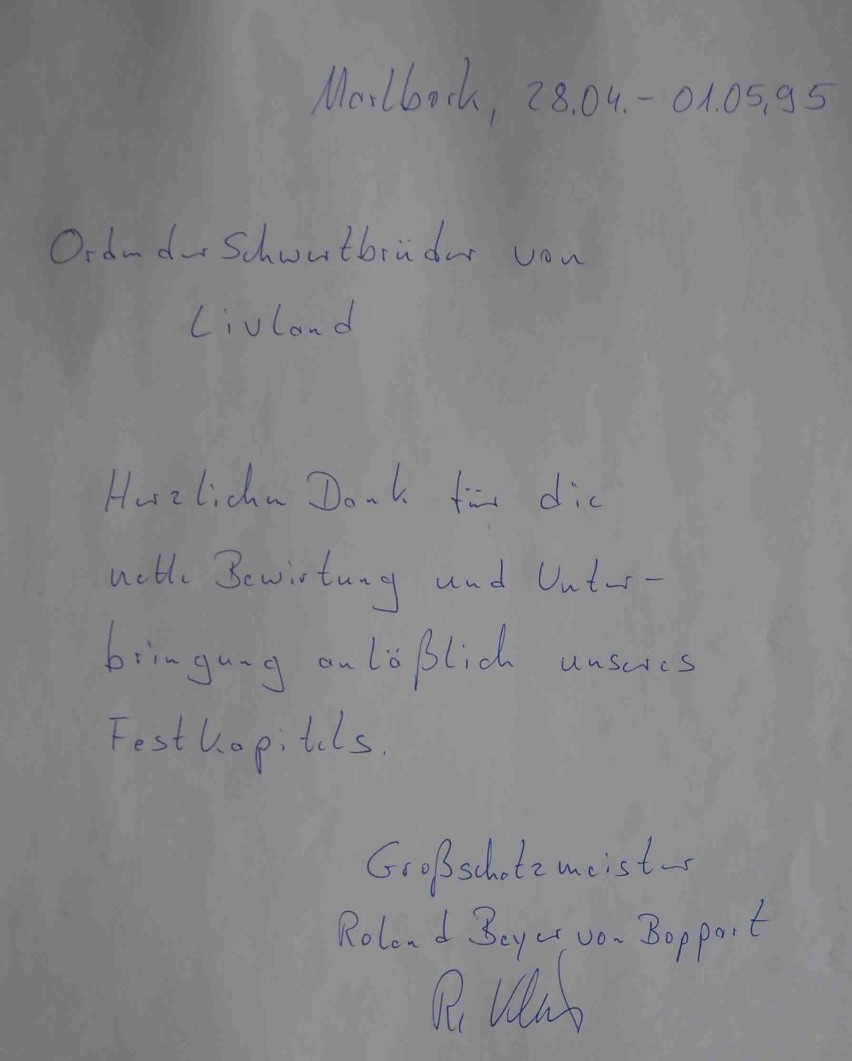 Marlbork, 28.04.- 01.05.95
Orden der Schwertbrüder von
Livland
Herzlichen Dank für die
nette Bewirtung und Unter-
bringung anläßlich unseres
Festkapitels.
Großschatzmeister
Roland Beyer von Boppart
R.